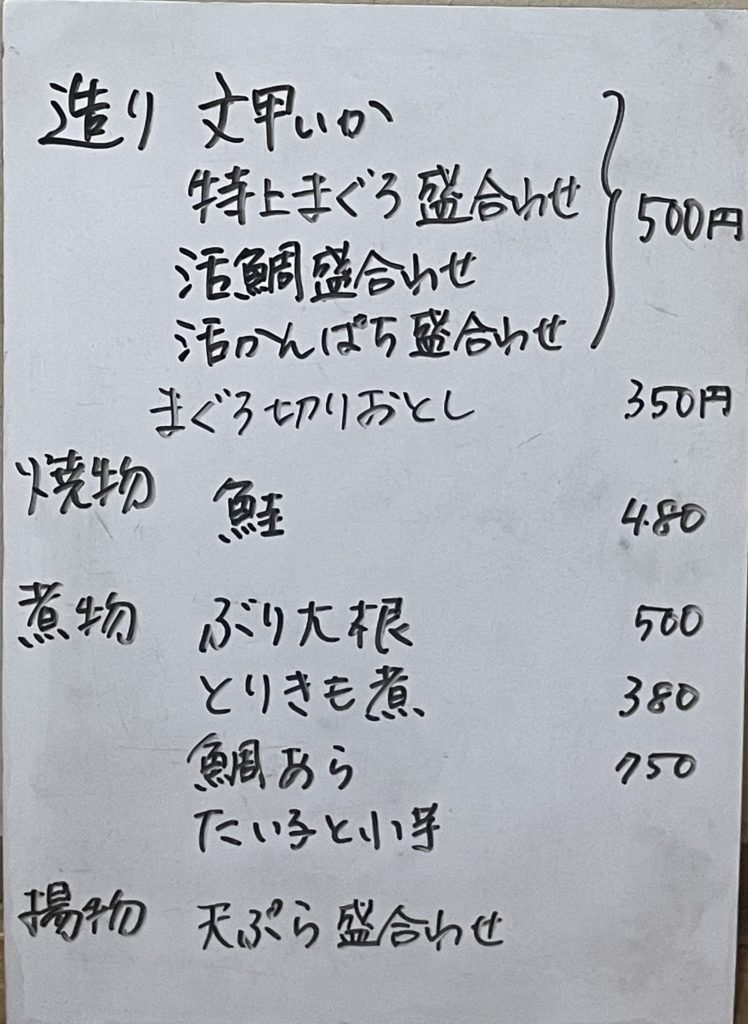 造り 文甲いか
特上まぐろ盛合わせ
活鯛盛合わせ
活かんぱち盛合わせ
500円
まぐろ切りおとし 350円
焼物 鮭 480
煮物 ぶり大根 500
とりきも煮 380
鯛あら 750
たい子と小芋
揚物 天ぷら盛合わせ